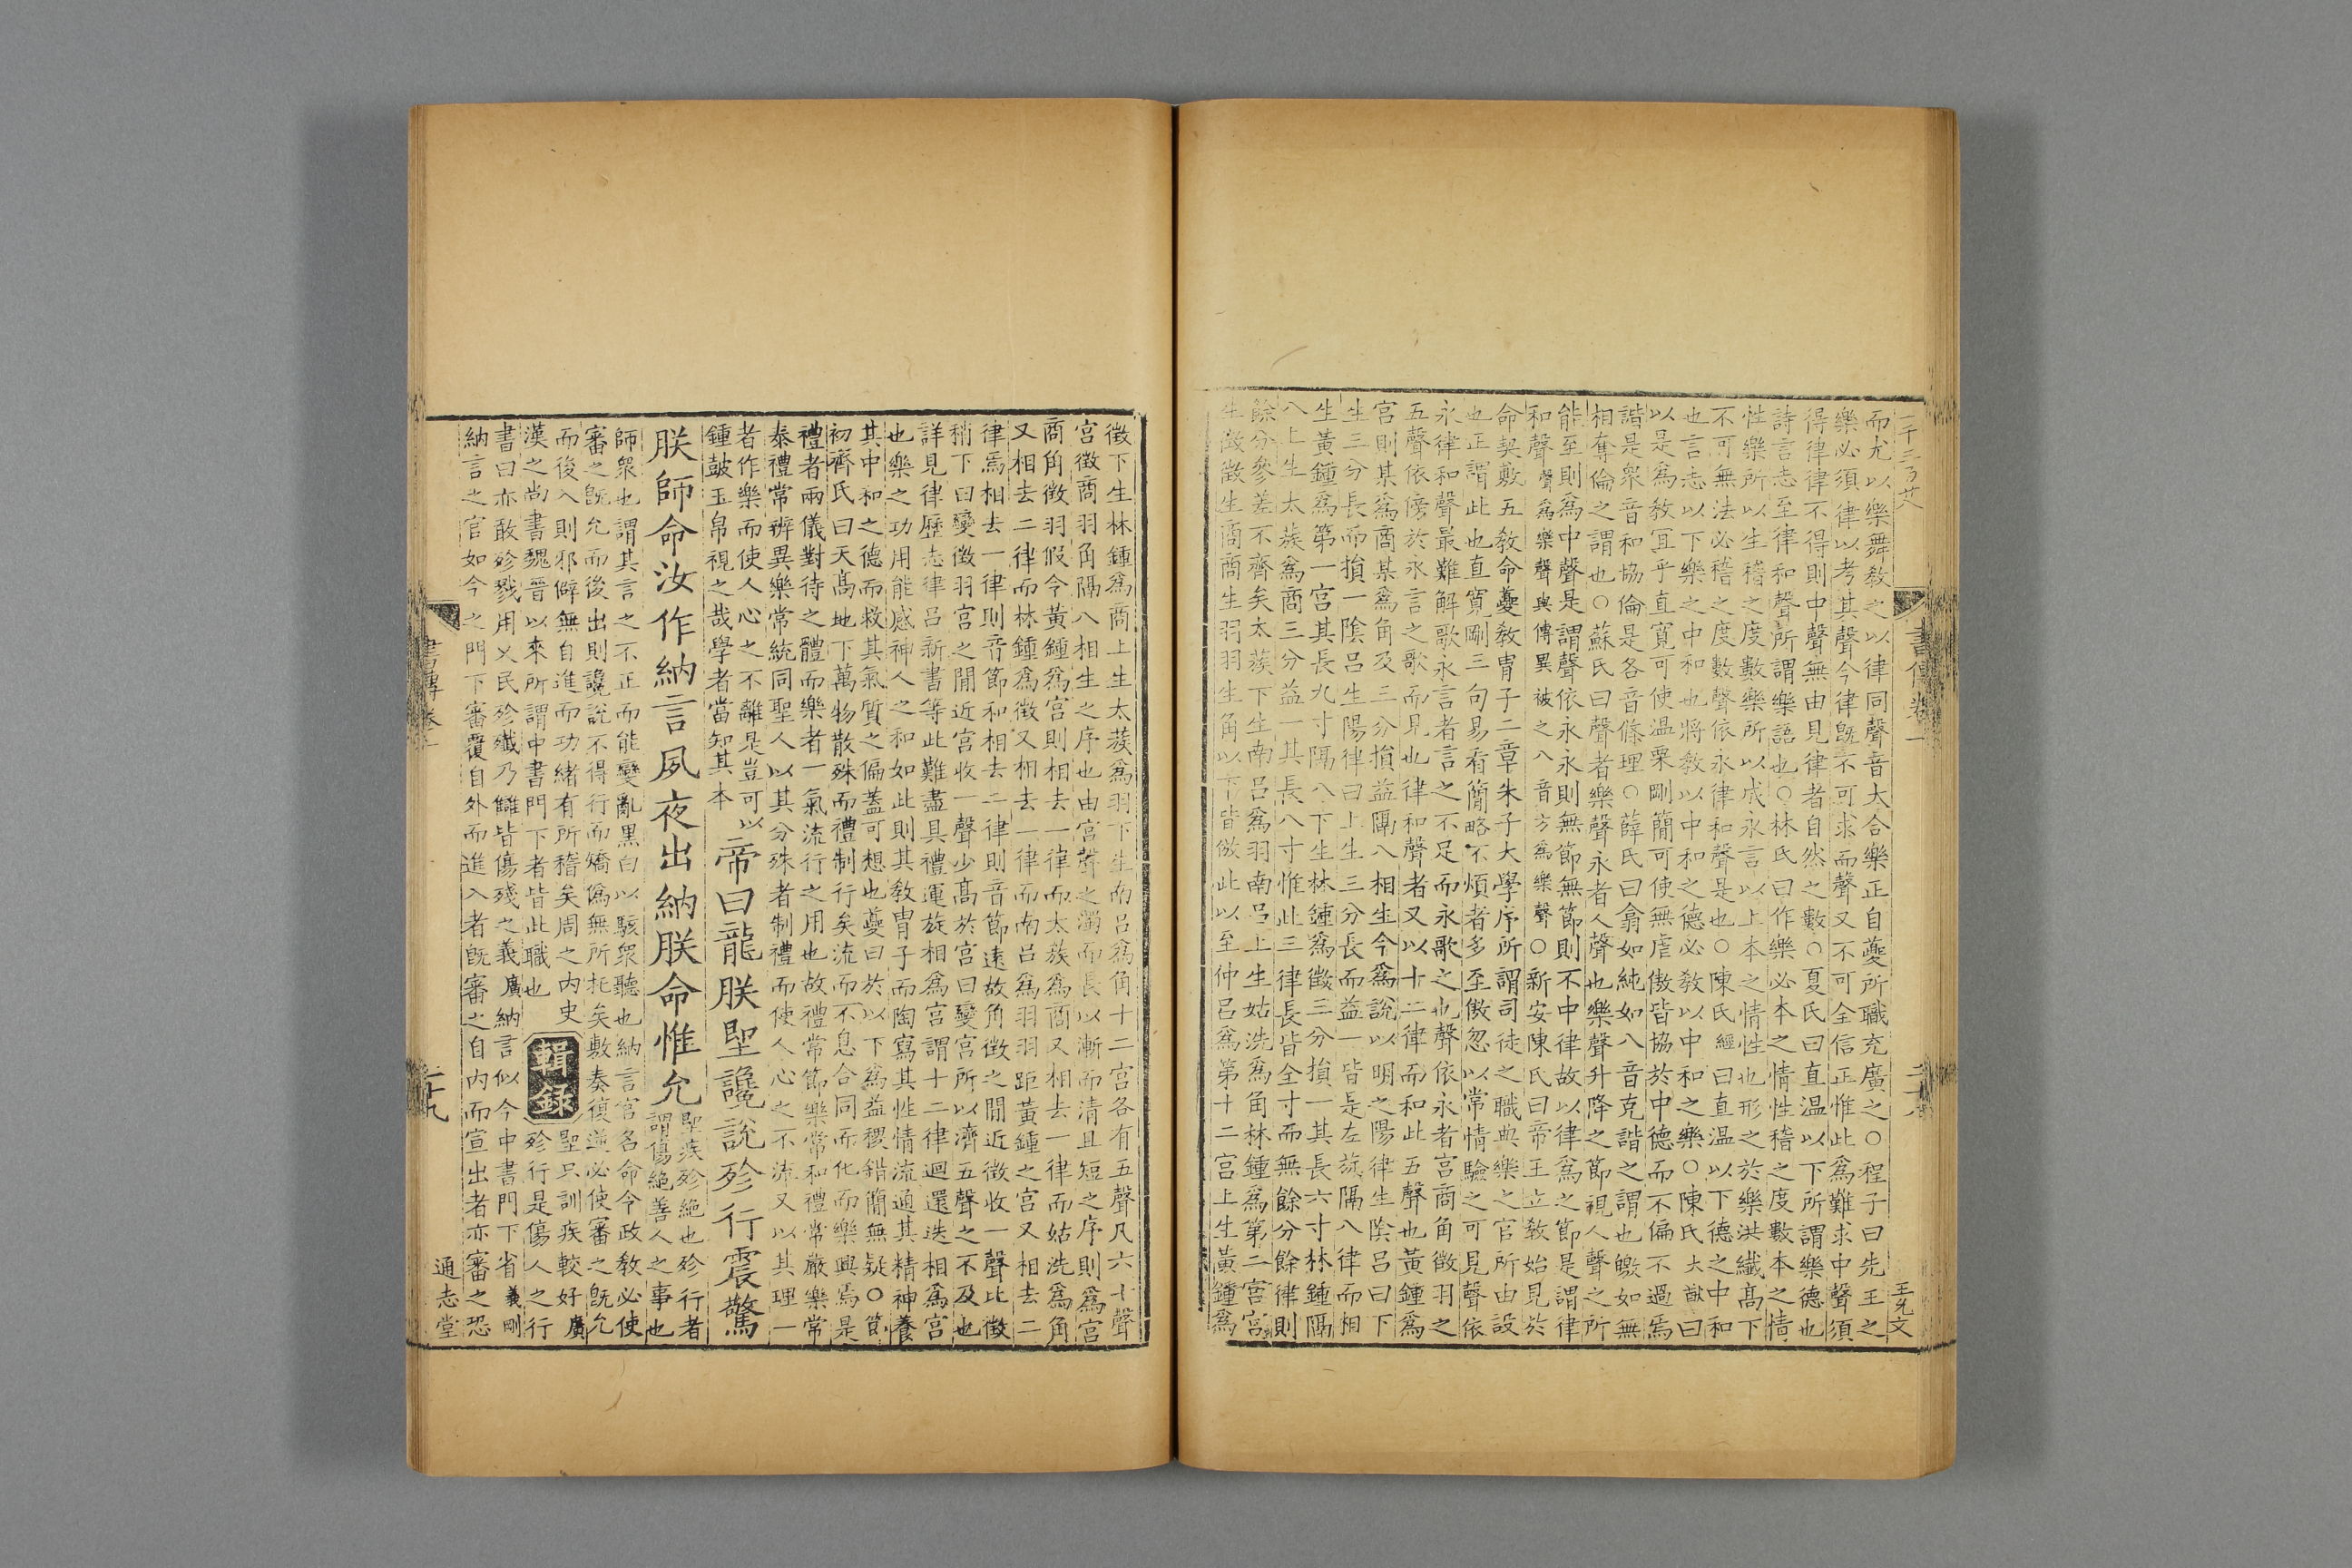 而尤以樂舞敎之以律同聲音大合樂正自夔所職充廣之○程子曰先王之
樂必須律以考其聲今律旣不可求而聲又不可全信正惟此爲難求中聲須
得律律不得則中聲無由見律者自然之數○夏氏曰直温以下所謂樂德也
詩言志至律和聲所謂樂語也○林氏曰作樂必本之情性稽之度數本之情
性樂所以生稽之度數樂所以成永言以上本之情性也形之於樂洪纖髙下
不可無法必稽之度數聲依永律和聲是也○陳氏經曰直温以下德之中和
也言志以下樂之中和也將敎以中和之德必敎以中和之樂○陳氏大猷曰
以是爲敎宜乎直寬可使温栗剛簡可使無虐傲皆協於中德而不偏不過焉
諧是衆音和協倫是各音條理○薛氏曰翕如純如八音克諧之謂也皦如無
相奪倫之謂也○蘇氏曰聲者樂聲永者人聲也樂聲升降之節視人聲之所
能至則爲中聲是謂聲依永永則無節無節則不中律故以律爲之節是謂律
和聲聲爲樂聲與傳異被之八音方爲樂聲○新安陳氏曰帝王立敎始見於
命契敷五敎命夔敎胄子二章朱子大學序所謂司徒之職典樂之官所由設
也正謂此也直寬剛三句易看簡略不煩者多至傲忽以常情驗之可見聲依
永律和聲最難解歌永言者言之不足而永歌之也聲依永者宮商角徵羽之
五聲依傍於永言之歌而見也律和聲者又以十二律而和此五聲也黃鍾爲
宮則某爲商某爲角及三分損益隔八相生今爲說以明之陽律生陰呂曰下
生三分長而損一陰呂生陽律曰上生三分長而益一皆是左旋隔八律而相
生黃鍾爲第一宮其長九寸隔八下生林鍾爲徵三分損一其長六寸林鍾隔
八上生太蔟爲商三分益一其長八寸惟此三律長皆全寸而無餘分餘律則
餘分參差不齊矣太蔟下生南呂爲羽南呂上生姑洗爲角林鍾爲第二宮宮
生徵徵生商商生羽羽生角以下皆倣此以至仲呂爲第十二宮上生黃鍾爲
書傳卷一
二十八
王允文
徵下生林鍾爲商上生太蔟爲羽下生南呂爲角十二宮各有五聲凡六十聲
宮徵商羽角隔八相生之序也由宮聲之濁而長以漸而清且短之序則爲宮
商角徵羽假令黃鍾爲宮則相去一律而太蔟爲商又相去一律而姑洗爲角
又相去二律而林鍾爲徵又相去一律而南呂爲羽羽距黃鍾之宮又相去二
律焉相去一律則音節和相去二律則音節遠故角徵之間近徵收一聲比徵
稍下曰變徵羽宮之間近宮收一聲少髙於宮曰變宮所以濟五聲之不及也
詳見律歷志律呂新書等此難盡具禮運旋相爲宮謂十二律迴還迭相爲宮
也樂之功用能感神人之和如此則其敎胄子而陶寫其性情流通其精神養
其中和之德而救其氣質之偏蓋可想也夔曰於以下爲益稷錯簡無疑○鄭
初齊氏曰天髙地下萬物散殊而禮制行矣流而不息合同而化而樂興焉是
禮者兩儀對待之體而樂者一氣流行之用也故禮常節樂常和禮常嚴樂常
泰禮常辨異樂常統同聖人以其分殊者制禮而使人心之不流又以其理一
者作樂而使人心之不離是豈可以
鍾鼓玉帛視之哉學者當知其本
帝曰龍朕堲讒說殄行震驚
朕師命汝作納言夙夜出納朕命惟允
堲疾殄絶也殄行者
謂傷絶善人之事也
師衆也謂其言之不正而能變亂黑白以駭衆聽也納言官名命令政敎必使
審之旣允而後出則讒說不得行而矯僞無所托矣敷奏復逆必使審之旣允
而後入則邪僻無自進而功緒有所稽矣周之內史
漢之尚書魏晉以來所謂中書門下者皆此職也
輯錄
堲只訓疾較好廣
殄行是傷人之行
書曰亦敢殄戮用乂民殄殲乃讎皆傷殘之義廣納言似今中書門下省義剛
納言之官如今之門下審覆自外而進入者旣審之自內而宣出者亦審之恐
書傳卷一
二十九
通志堂